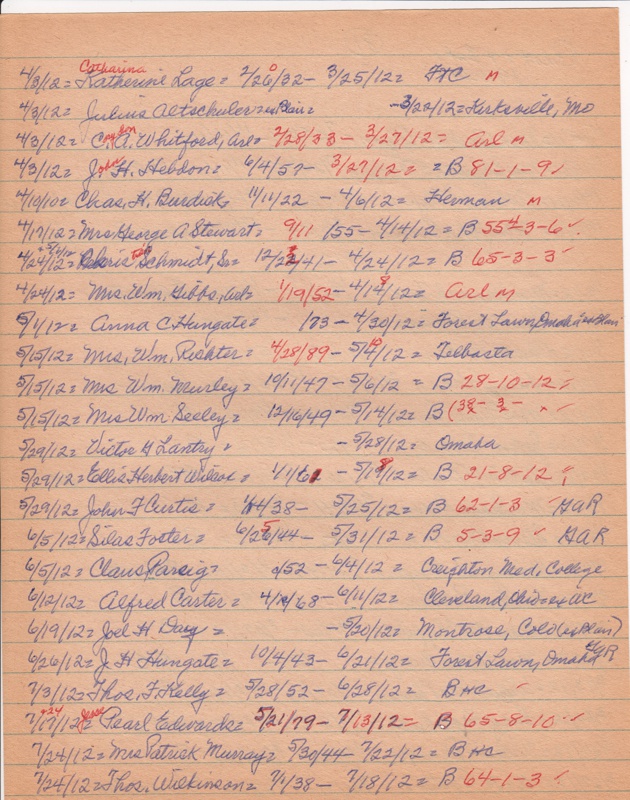 4/3/12= Catharina Katherine Lage= 2/26/32 - 3/25/12= FTC M
4/3/12= Julius Altschuler=ex Blair= - 3/22/12=Kirksville, Mo
4/3/12= C. A. Whitford, Arl= 2/28/33 - 3/27/12= Arl M
4/3/12= John H. Hebdon= 6/4/57 - 3/27/12= =B 81-1-9
4/10/10= Chas. H. Burdick= 11/11/22 - 4/6/12= Herman M
4/17/12= Mrs George A Stewart= 9/11/55 - 4/14/12= B 55-3-6
4/24/12= Schmidt, Sr= 12/22/41 - 4/24/12= B 65-3-3
4/24/12= Mrs. Wm. Gibbs, Arl= 1/19/52 - 4/18/12= Arl M
5/1/12= Anna C Hungate= /73 - 4/30/12= Forest Lawn, Omaha ex Blair
5/15/12= Mrs. Wm. Richter= 4/28/89 - 5/10/12= Telbasta
5/15/12= Mrs Wm. Mursley= 10/11/47 - 5/6/12= B 28-10-12
5/15/12= Mrs Wm Seeley= 12/16/49 - 5/14/12= B (38- 3- x
5/29/12= Victor G Lantry= - 5/28/12= Omaha
5/29/12= Ellis Herbert Wilcox= 4/1/62 - 5/18/12= B 21-8-12
5/29/12= John F Curtis= 1/14/38 - 5/25/12= B 62-1-3 GAR
6/5/12= Silas Foster= 6/25/44 - 5/31/12= B 5-3-9 GAR
6/5/12= Claus Parsig= /52 - 6/4/12= Creighton Med. College
6/12/12= Alfred Carter= 4/19/68 - 6/11/12= Cleveland, Ohio=ex AC
6/19/12= Joel H Day= - 5/20/12= Montrose, Colo (ex Blair)
6/26/12= J. H Hungate= 10/4/43 - 6/21/12= Forest Lawn, Omaha GAR
7/3/12= Thos. F. Kelly= 5/28/52 - 6/28/12= B HC
7/17/12 +24 = Jesse Pearl Edwards= 5/21/79 - 7/13/12= B 65-8-10
7/24/12= Mrs Patrick Murray= 5/30/44 - 7/22/12= B HC
7/24/12= Thos. Wilkinson= 7/1/38 - 7/18/12= B 64-1-3